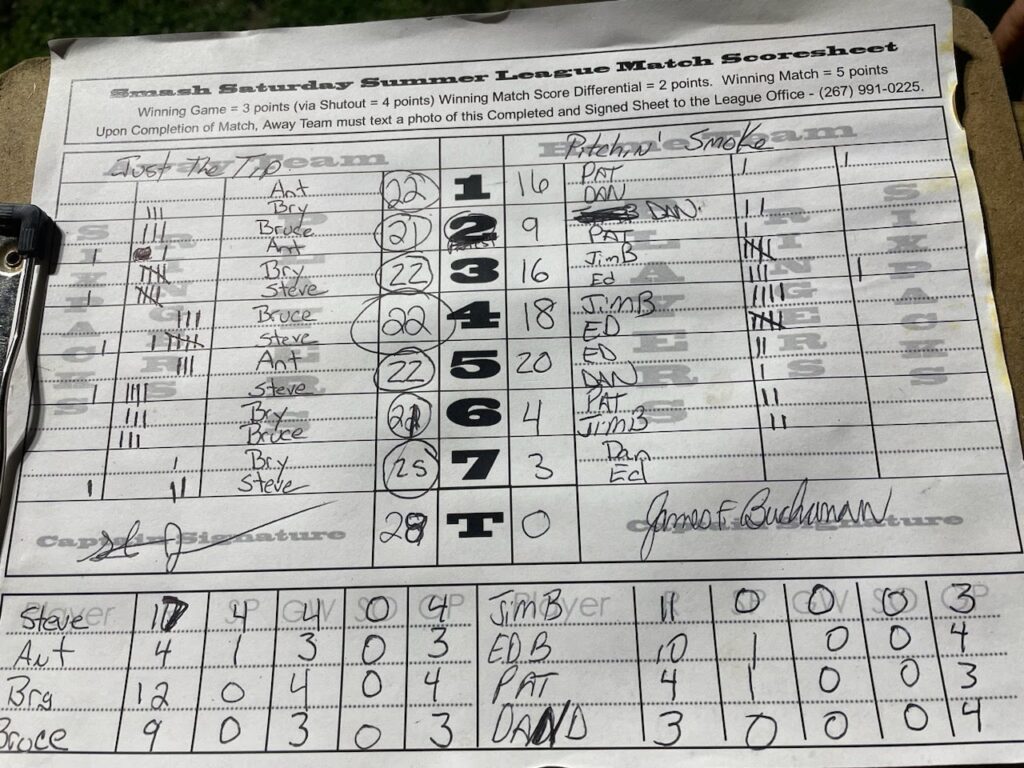 Smash Saturday Summer League Match Scoresheet
Winning Game = 3 points (via Shutout = 4 points) Winning Match Score Differential = 2 points. Winning Match = 5 points
Upon Completion of Match, Away Team must text a photo of this Completed and Signed Sheet to the League Office - (267) 991-0225.
Away Team Home Team
Just The Tip Pitchin' Smoke
SIXPACKS RINGERS PLAYERS PLAYERS RINGERS SIXPACKS
Ant 22 1 16 PAT I I
Bry III DAN
Bruce III 21 2 9 DAN II
I Ant I PAT I
Bry IIII 22 3 16 JimB IIII
I Steve IIII Ed III I
Bruce III 22 4 18 JimB IIII
I Steve I IIII ED IIII
Ant III 22 5 20 ED II
I Steve IIII DAN I
Bry III 21 6 4 PAT II
Bruce III JimB II
Bry I 25 7 3 Dan
I Steve II Ed
Captain Signature 28 T 0 James F Buchanan
Captain Signature
Player R SP GW SO GP Player R SP GW SO GP
Steve 17 4 4 0 4 JimB 11 0 0 0 3
Ant 4 1 3 0 3 EDB 10 1 0 0 4
Bry 12 0 4 0 4 PAT 4 1 0 0 3
Bruce 9 0 3 0 3 DAN D 3 0 0 0 4